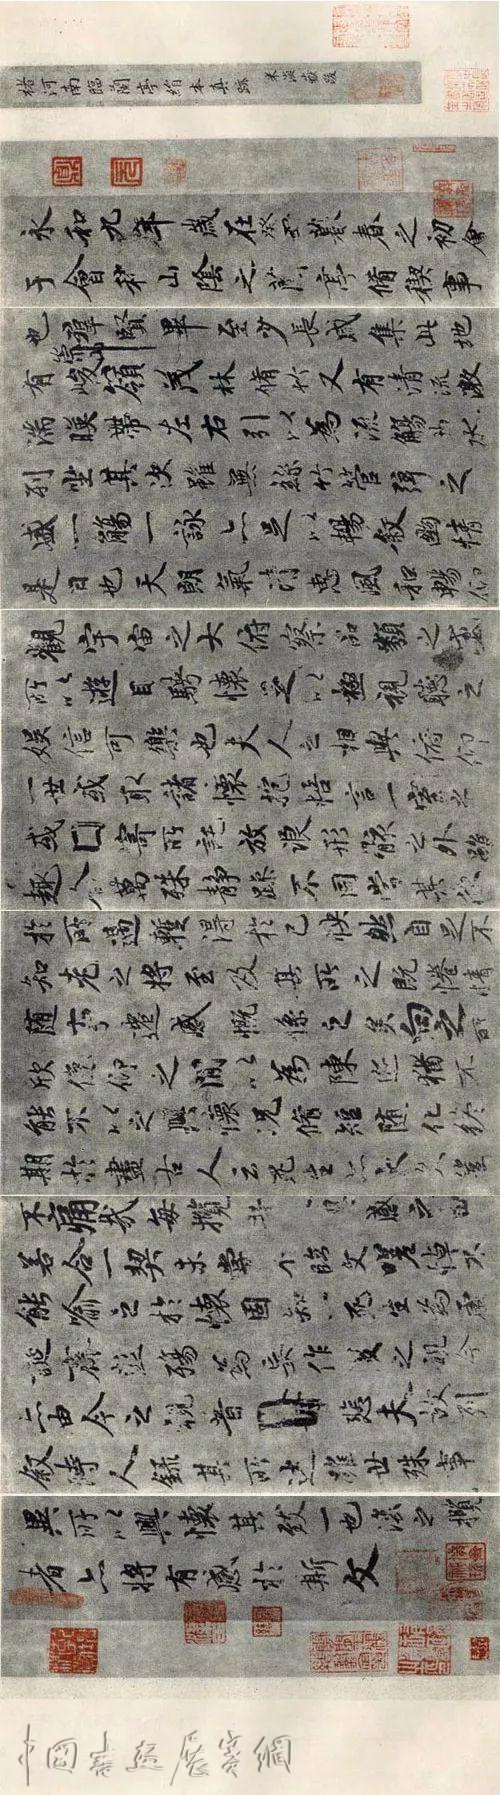 褚河南臨蘭亭絹本真跡
永和九年歲在癸丑暮春之初會
于會稽山陰之蘭亭脩稧事
也群賢畢至少長咸集此地
有崇山峻領茂林脩竹又有清流激
湍暎帶左右引以為流觴曲水
列坐其次雖無絲竹管弦之
盛一觴一詠亦足以暢敘幽情
是日也天朗氣清惠風和暢仰
觀宇宙之大俯察品類之盛
所以遊目騁懷足以極視聽之
娛信可樂也夫人之相與俯仰
一世或取諸懷抱悟言一室之內
或因寄所託放浪形骸之外雖
趣舍萬殊靜躁不同當其欣
於所遇暫得於己怏然自足不
知老之將至及其所之既惓情
隨事遷感慨係之矣向之所
欣俛仰之間以為陳迹猶不
能不以之興懷況脩短隨化終
期於盡古人云死生亦大矣豈
不痛哉每攬昔人興感之由
若合一契未嘗不臨文嗟悼不
能喻之於懷固知一死生為虛
誕齊彭殤為妄作後之視今
亦由今之視昔悲夫故列
敘時人錄其所述雖世殊事
異所以興懷其致一也後之攬
者亦將有感於斯文
中国书画展赛網